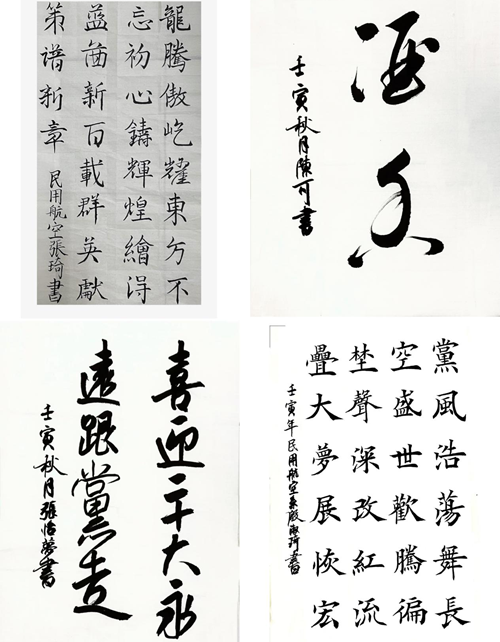 龍騰傲屹耀東方不
忘初心鑄輝煌繪得
蓝啚新百載群英獻
策譜新章
民用航空張琦書
壬寅秋月陳可書
喜迎二十大永
遠跟黨走
壬寅秋月張怡夢書
黨風浩蕩舞長
空盛世歡騰徧
埜聲深改紅流
疊大夢展恢宏
壬寅年民用航空系殷琦書